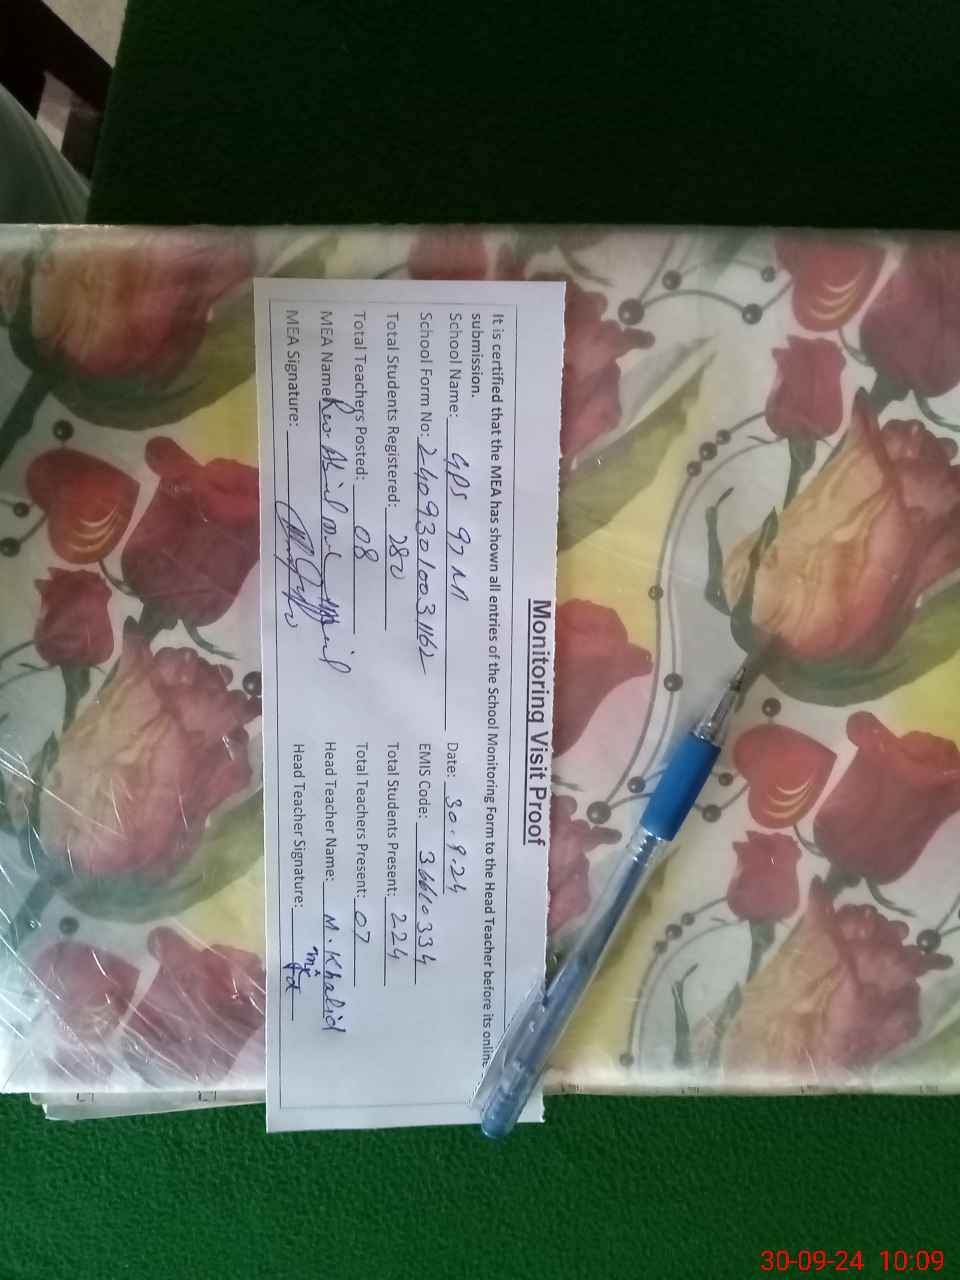 Monitoring Visit Proof
It is certified that the MEA has shown all entries of the School Monitoring Form to the Head Teacher before its online
submission.
School Name: GPS 97 Date: 30.9.24
School Form No: EMIS Code: 36610334
Total Students Registered: 280 Total Students Present: 224
Total Teachers Posted: 08 Total Teachers Present: 07
MEA Name: Head Teacher Name: M. Khalid
MEA Signature: Head Teacher Signature:
30-09-24 10:09